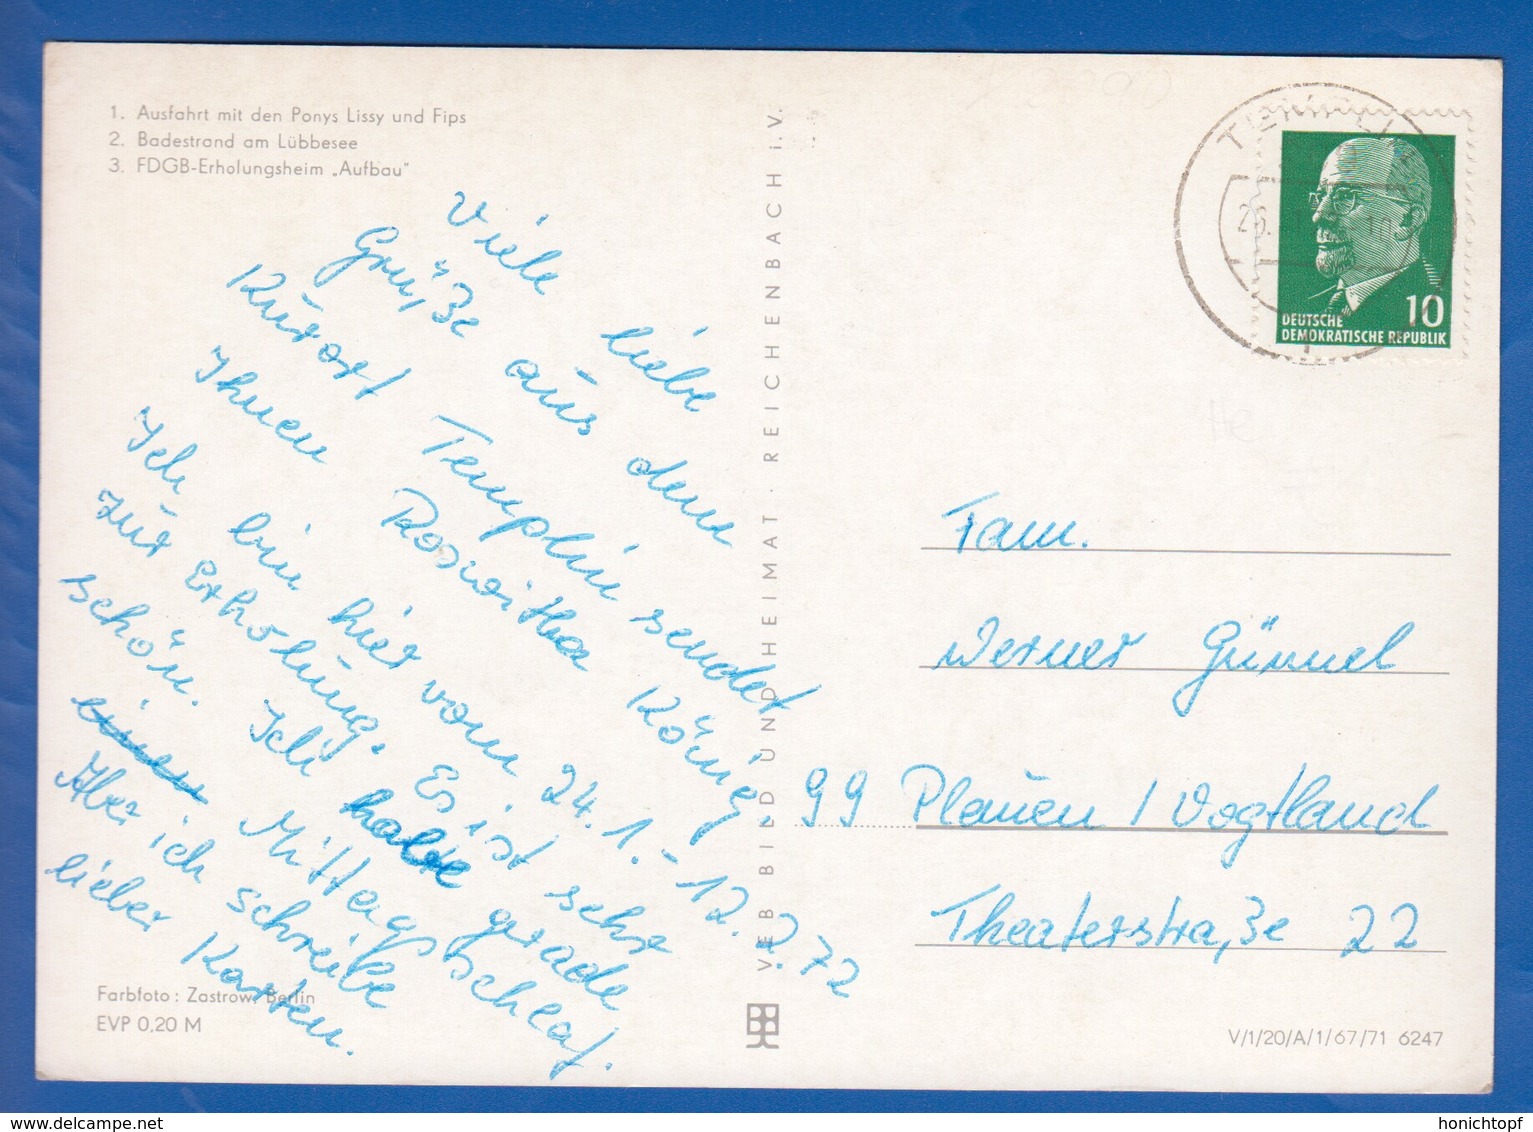 1. Ausfahrt mit den Ponys Lissy und Fips
2. Badestrand am Lübbesee
3. FDGB-Erholungsheim „Aufbau"
Viele liebe
Grüße aus dem
Kurort Templin sendet
Ihnen Roswitha König.
Ich bin hier vom 24.1.-12.2.72
zur Erholung. Es ist sehr
schön. Ich halte gerade
einen Mittagsschlaf.
Aber ich schreibe
lieber Karten.
Farbfoto: Zastrow, Berlin
EVP 0,20 M
VEB BILD UND HEIMAT · REICHENBACH i.V.
10
DEUTSCHE
DEMOKRATISCHE REPUBLIK
Fam.
Werner Günnel
99 Plauen / Vogtland
Theaterstraße 22
V/1/20/A/1/67/71 6247
delcampe.net
honichtopf